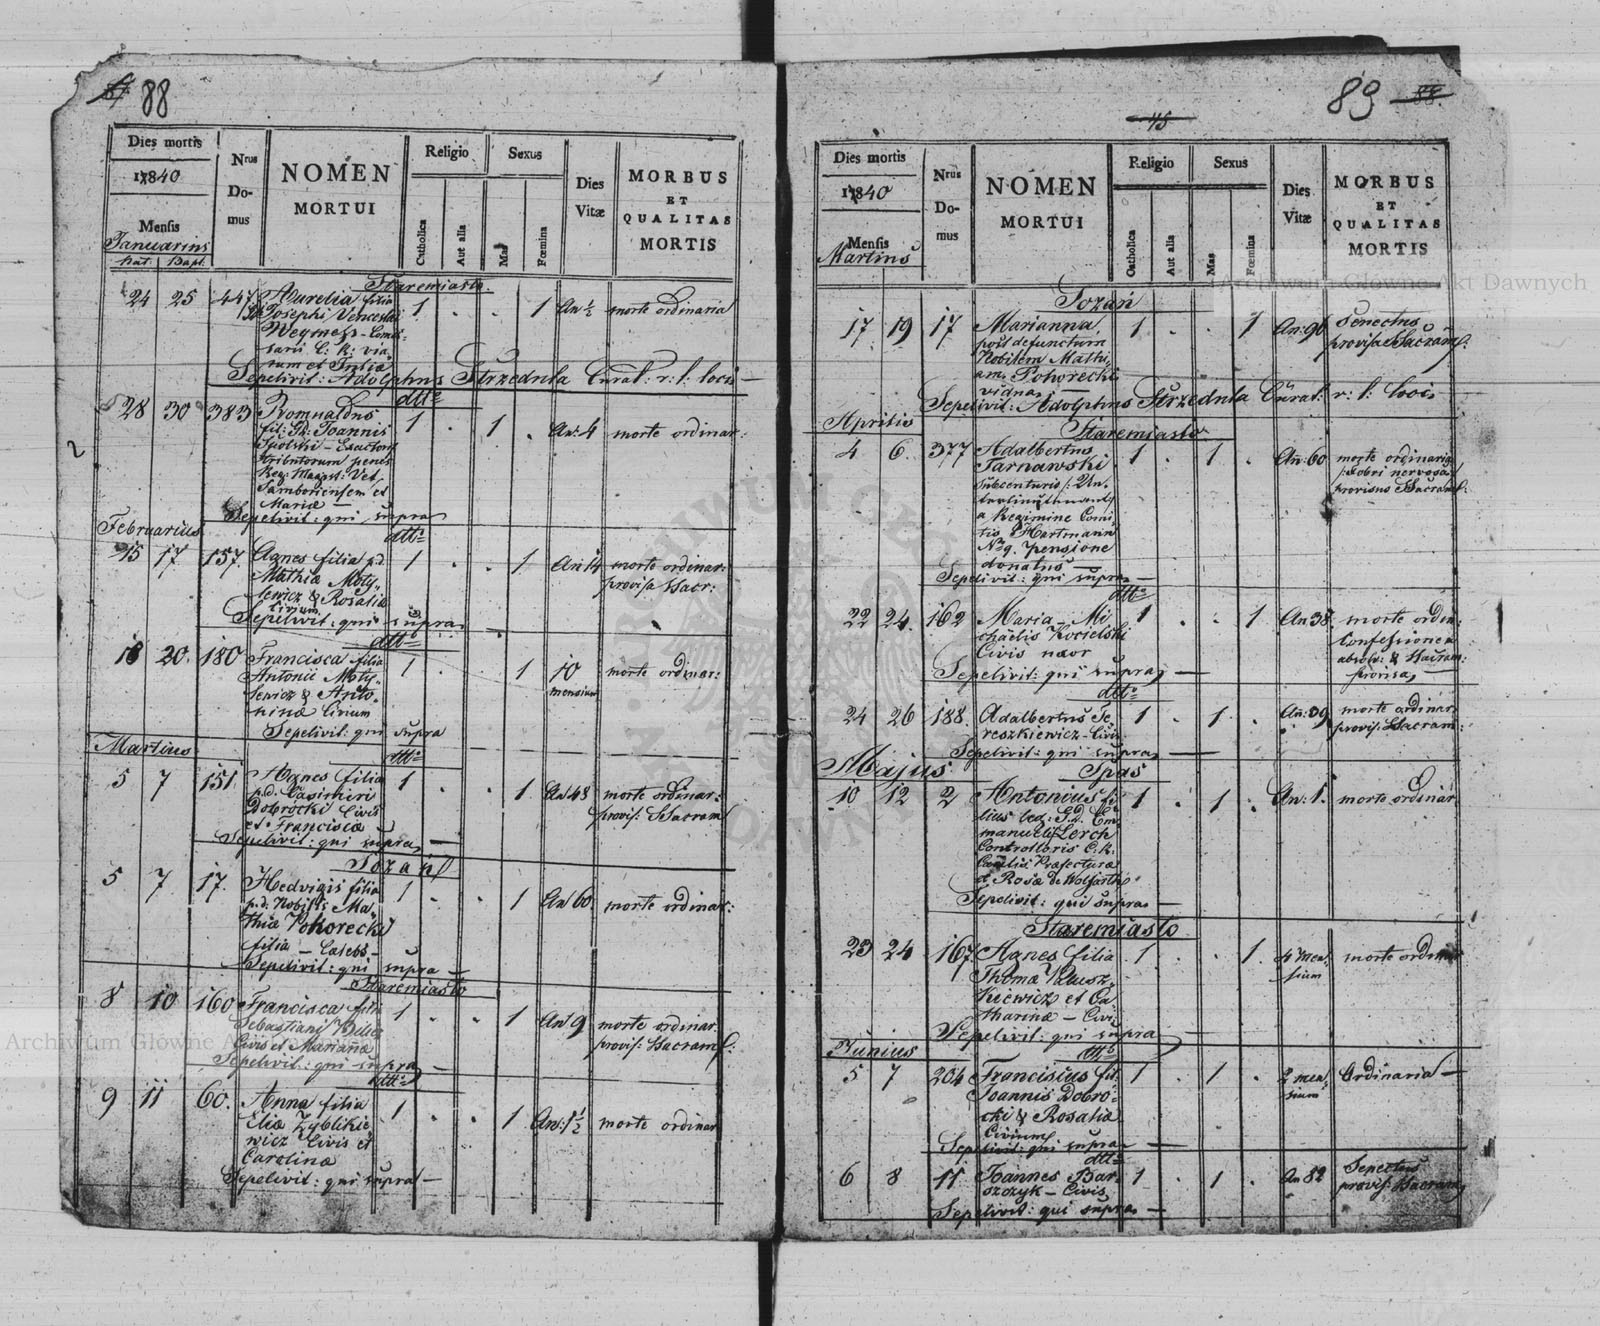 88
Dies mortis
1840
Mensis
Januarius
Nat. Bapt.
Nrus
Do-
mus
NOMEN
MORTUI
Religio
Catholica
Aut alia
Sexus
Mas
Fœmina
Dies
Vitæ
MORBUS
ET
QUALITAS
MORTIS
Staremiasto
24 25 447 Aurelia filia 1 . . 1 An ½ morte ordinaria
Josephi Venceslai
sarii C: K: via-
rum et Juliæ
Sepelivit: Adolphus Strzednla Curat: r: l: loci
dtto
28 30 383 Romualdus 1 . 1 . An: 4 morte ordinar:
fil: Joannis
Exactoris
tributorum penes
Reg: Magist: Vet
Samboriensem et
Mariæ
Sepelivit: qui supra
Februarius
dtto
15 17 157. Agnes filia p.d. 1 . . 1 An 14 morte ordinar:
Mathiæ Moty- provisa Sacr:
lewicz & Rosaliæ
Civium
Sepelivit: qui supra
dtto
18 20. 180 Francisca filia 1 . . 1 10 morte ordinar:
Antonii Moty- mensium
lewicz & Anto-
ninæ Civium
Sepelivit: qui supra
Martius
dtto
5 7 151 Agnes filia 1 . . 1 An 48 morte ordinar:
p.d. Casimiri provis: Sacram
Dobrocki Civis
et Franciscæ
Sepelivit: qui supra
Tozań
5 7 17. Hedvigis filia 1 . . 1 An 60. morte ordinar:
p.d: Nobilis Ma-
thiæ Pohorecki
filia
Sepelivit: qui supra
Staremiasto
8 10 160 Francisca filia 1 . . 1 An 9 morte ordinar.
Sebastiani provis: Sacram:
Civis et Mariannæ
Sepelivit: qui supra
dtto
9 11 60. Anna filia 1 . . 1 An: 1½ morte ordinar
Eliæ Zyblikie-
wicz Civis et
Carolinæ
Sepelivit: qui supra
89
45
Dies mortis
1840
Mensis
Martius
Nrus
Do-
mus
NOMEN
MORTUI
Religio
Catholica
Aut alia
Sexus
Mas
Fœmina
Dies
Vitæ
MORBUS
ET
QUALITAS
MORTIS
Tozań
17 19 17 Marianna 1 . . 1 An: 96 Senectus
post defunctum provisa Sacram:
Nobilem Mathi-
am Pohorecki
vidua
Sepelivit: Adolphus Strzednla Curat: r: l: loci
Aprilis
Staremiasto
4 6. 377 Adalbertus 1 . 1 . An: 60 morte ordinaria
Tarnawski febri nervosa
provisus Sacram:
a Regimine Comi-
tis Hartmann
No 9. pensione
donatus
Sepelivit: qui supra
dtto
22 24. 162 Maria Mi- 1 . . 1 An 38. morte ordin:
chaelis Kocielski Confessione
Civis uxor absolv: & Sacram:
provisa
Sepelivit: qui supra
dtto
24 26 188. Adalbertus Te- 1 . 1 . An: 39 morte ordinar
reszkiewicz Civis provis: Sacram:
Sepelivit: qui supra
Majus
Spas
10 12 2 Antonius fi- 1 . 1 . An: 1. morte ordinar
lius leg: S.d. Em-
manueli Lerch
Controlloris C. K.
Præfecturæ
& Rosæ de Wolfarth
Sepelivit: qui supra
Staremiasto
23 24 167 Agnes filia 1 . . 1 4 men- morte ordinar
Thomæ sium
kiewicz et Ca-
tharinæ Civi
Sepelivit: qui supra
Junius
dtto
5 7 204 Franciscus fil: 1 . 1 . 2 men- Ordinaria
Joannis Dobro- sium
cki & Rosaliæ
Civium
Sepelivit: qui supra
dtto
6 8 11 Joannes Bar- 1 . 1 . An 82 Senectus
szczyk Civis provis: Sacram
Sepelivit: qui supra
Archiwum Główne Akt Dawnych
Archiwum Główne Akt Dawnych